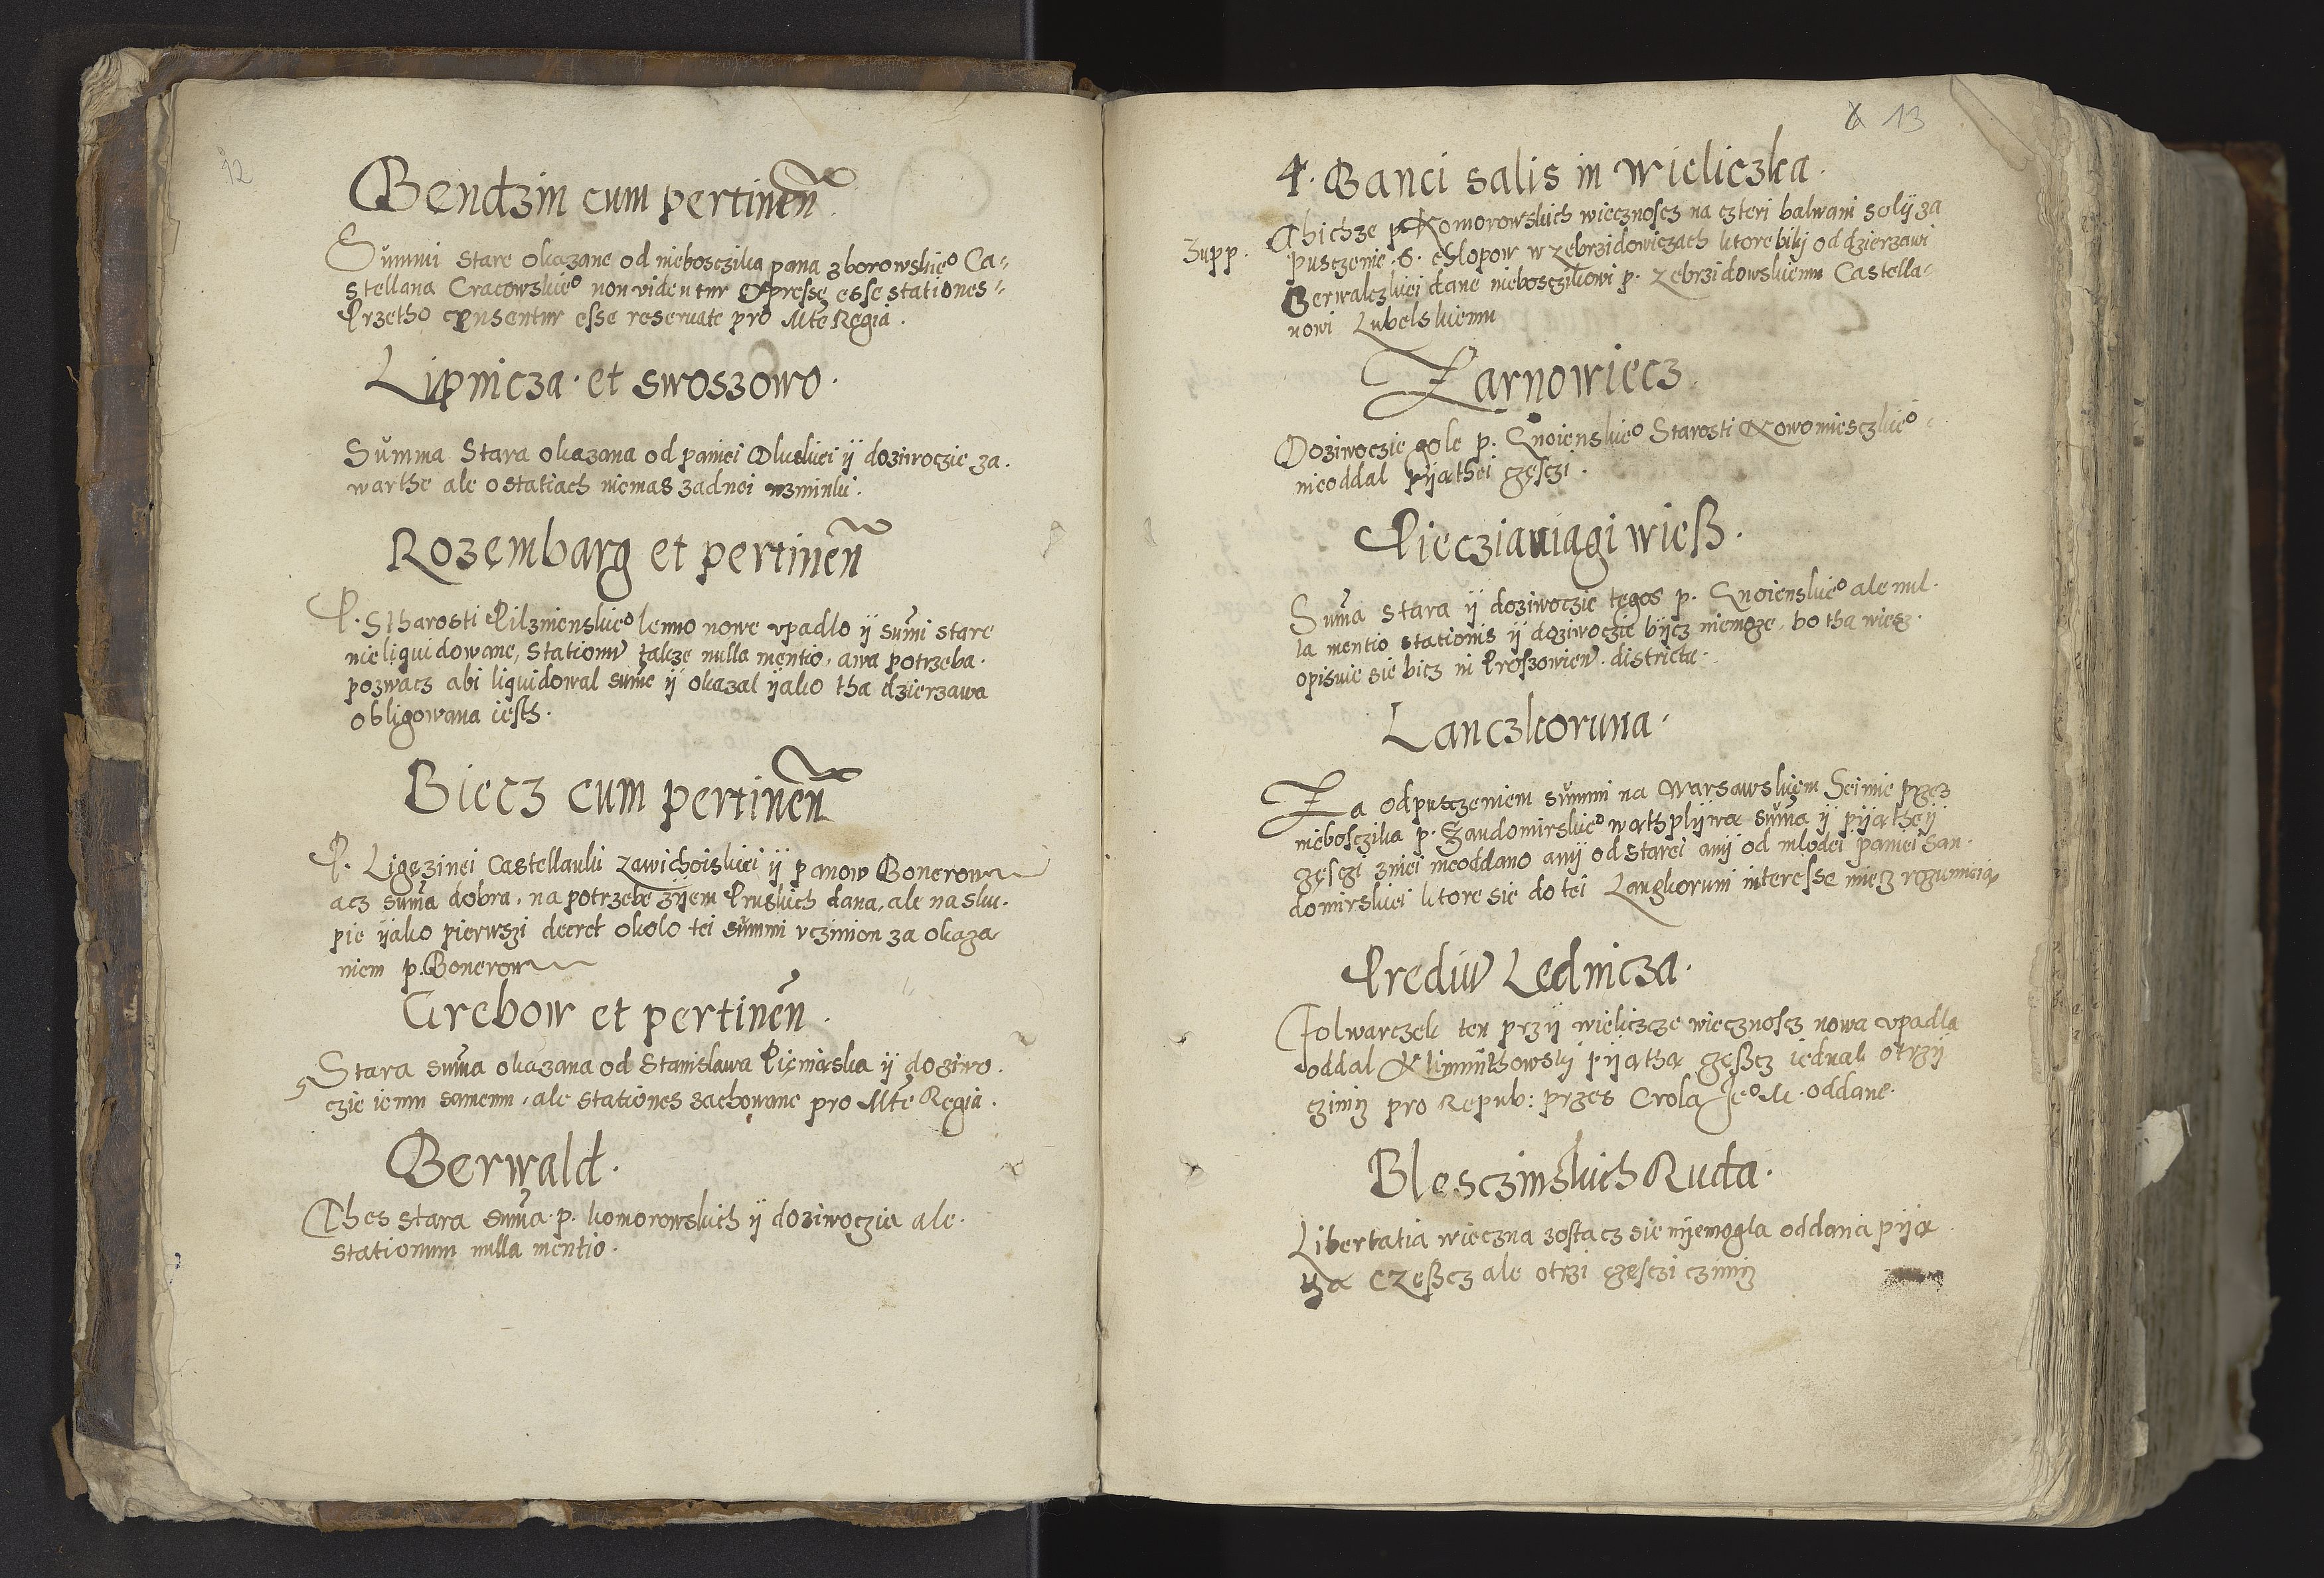 12
Bendzin cum pertinen̄
Summi Stare okazane od niebosczika pana zborowskie° Ca-
stellana Cracowskie° non videntur expresse esse stationes
Przetho censentur esse reseruate pro Mte Regia.
Lipnicza et swoszowo.
Summa Stara okazana od paniei Oluskiei ij doziwoczie za.
warthe ale o statiach niemas zadnei wzminki.
Rozembarg et pertinen̄
P. Stharosti Pilznienskie° lenno nowe vpadlo ij sum̄i stare
nie liquidowane, Stationū takze nulla mentio, a wa potrzeba.
pozwacz abi liquidowal sum̄e ij okazal ijako tha dzierzawa
obligowana iesth.
Biecz cum pertinen̄
P. Ligęzinei Castellanki Zawichoiskiei ij panow Bonerow
acz sum̄a dobra, na potrzebe zijem Pruskich dana, ale na sku.
pie ijako pierwszi decret okolo tei sum̄mi vczinion za okaza
niem p. Bonerow
Grebow et pertinen̄.
Stara sum̄a okazana od Stanislawa ij doziwo.
czie iemu samemu, ale stationes zachowane pro Mte Regia.
Berwald.
Thes stara sum̄a p. komorowskich ij doziwoczia ale.
stationum nulla mentio.
13
4. Banci salis in Wieliczka.
Zupp.
Thichze p. Komorowskich wiecznoscz na czteri balwani solij za
pusczenie .6. chlopow w zebrzidowiczach ktore bilij od dzierzawi
Berwalczkiei dane nieboscziкowi p. zebrzidowskiemu Castella-
nowi Lubelskiemu
Zarnowiecz.
Doziwoczie gole p. Gnoienskie° Starosti Nowomiesczkie°
nieoddal pijathei częsczi.
Piecziauiagi wieß.
Sum̄a stara ij doziwoczie tegos p. Gnoienskie° ale nul.
la mentio stationis ij doziwoczie bijcz niemoze, bo tha wiesz.
opisuie sie bicz in Proszowien̄. districtu.
Lanczkoruna.
Za odpusczeniem summi na Warsawskiem Seimie przez
nieboszczika p. Sandomirskie° wathplijwa sum̄a ij pijatheij
częsczi zniei nieoddano anij od starei anij od mlodei paniei San.
domirskiei ktore sie do tei Langkoruni interesse miecz
Prediū Lednicza.
Folwarczek ten przij wieliczcze wiecznoscz nowa vpadla
oddal Klimunthowskij pijatha częßcz iednak otrzij
czinij pro Repub: przes Crola Je°M. oddane.
Blesczinskich Ruda.
Libertatia wieczna zostacz sie nijemogla oddana pija
ta Częßcz ale otrzi częsczi czinij